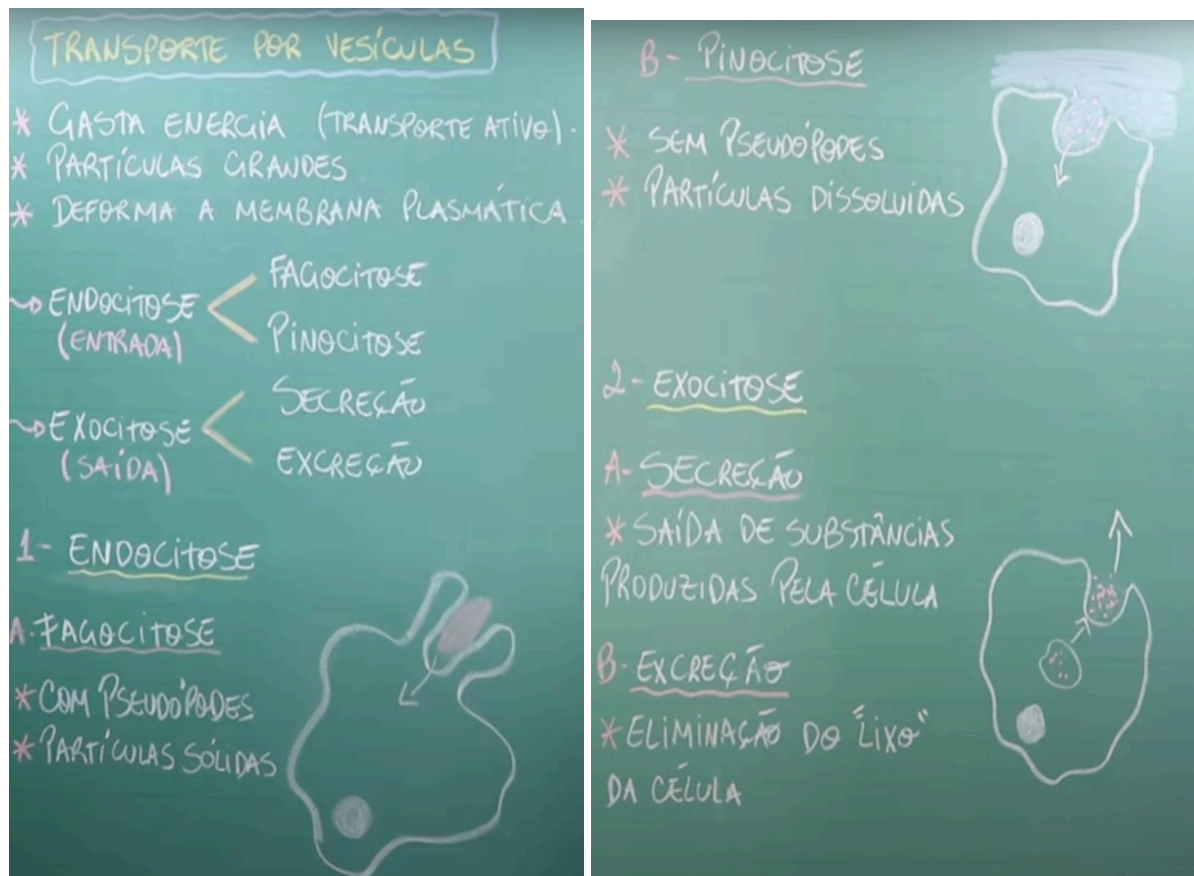 TRANSPORTE POR VESÍCULAS
* GASTA ENERGIA (TRANSPORTE ATIVO).
* PARTÍCULAS GRANDES
* DEFORMA A MEMBRANA PLASMÁTICA.
ENDOCITOSE
(ENTRADA)
FAGOCITOSE
PINOCITOSE
EXOCITOSE
(SAÍDA)
SECREÇÃO
EXCREÇÃO
1- ENDOCITOSE
A- FAGOCITOSE
* COM PSEUDÓPODES
* PARTÍCULAS SÓLIDAS
B- PINOCITOSE
* SEM PSEUDÓPODES
* PARTÍCULAS DISSOLUIDAS
2- EXOCITOSE
A- SECREÇÃO
* SAÍDA DE SUBSTÂNCIAS
PRODUZIDAS PELA CÉLULA
B- EXCREÇÃO
* ELIMINAÇÃO DO "LIXO"
DA CÉLULA